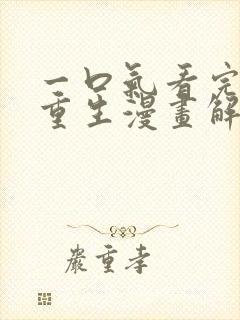 一口氣看完
重生漫畫解
嚴重孝